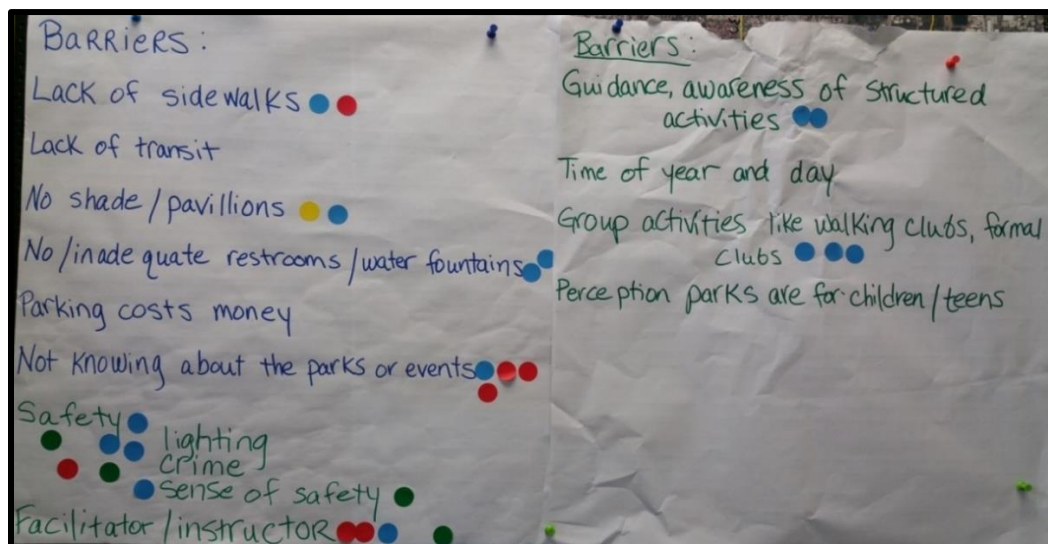 BARRIERS:
Lack of sidewalks
Lack of transit
No shade/pavillions
No/inadequate restrooms/water fountains
Parking costs money
Not knowing about the parks or events
Safety
lighting
crime
sense of safety
Facilitator/instructor
Barriers:
Guidance, awareness of structured
activities
Time of year and day
Group activities like walking clubs, formal
clubs
Perception parks are for children/teens